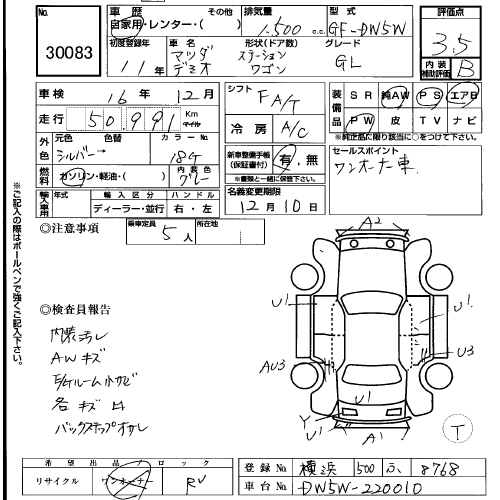 No. 30083
車歴 自家用・レンター・( ) その他
排気量 1,500 c.c.
型式 GF-DW5W
評価点 3.5
初度登録年 11年
車名 マツダ デミオ
形状(ドア数) ステーション ワゴン
グレード GL
内装補助評価 B
車検 16年 12月
走行 50,991 Km マイル
シフト F A/T
冷房 A/C
装備品 SR 純AW PS エアB
PW 皮 TV ナビ
※純正品に限り該当に○をつけて下さい。
外色 元色 シルバー→ 色替 カラーNo. 18G
燃料 ガソリン・軽油・( ) 内装色 グレー
新車整備手帳(保証書付) 有・無
※書類と一緒に保管下さい。
セールスポイント
ワンオーナー車.
輸入車用 年式 輸入区分 ディーラー・並行 ハンドル 右・左
名義変更期限 12月10日
◎注意事項
乗車定員 5人
所在地
※ご記入の際はボールペンで強くご記入下さい。
A2
U1
U1
AU3
U3
U1
Y
U1
A1
T
◎検査員報告
内張汚レ
AWキズ
E/Gルーム小サビ
各キズ凹
バックステップオカレ
希望出品/ロック
リサイクル ワンオーナー RV
登録No. 横浜 500 ふ 8768
車台No. DW5W-220010